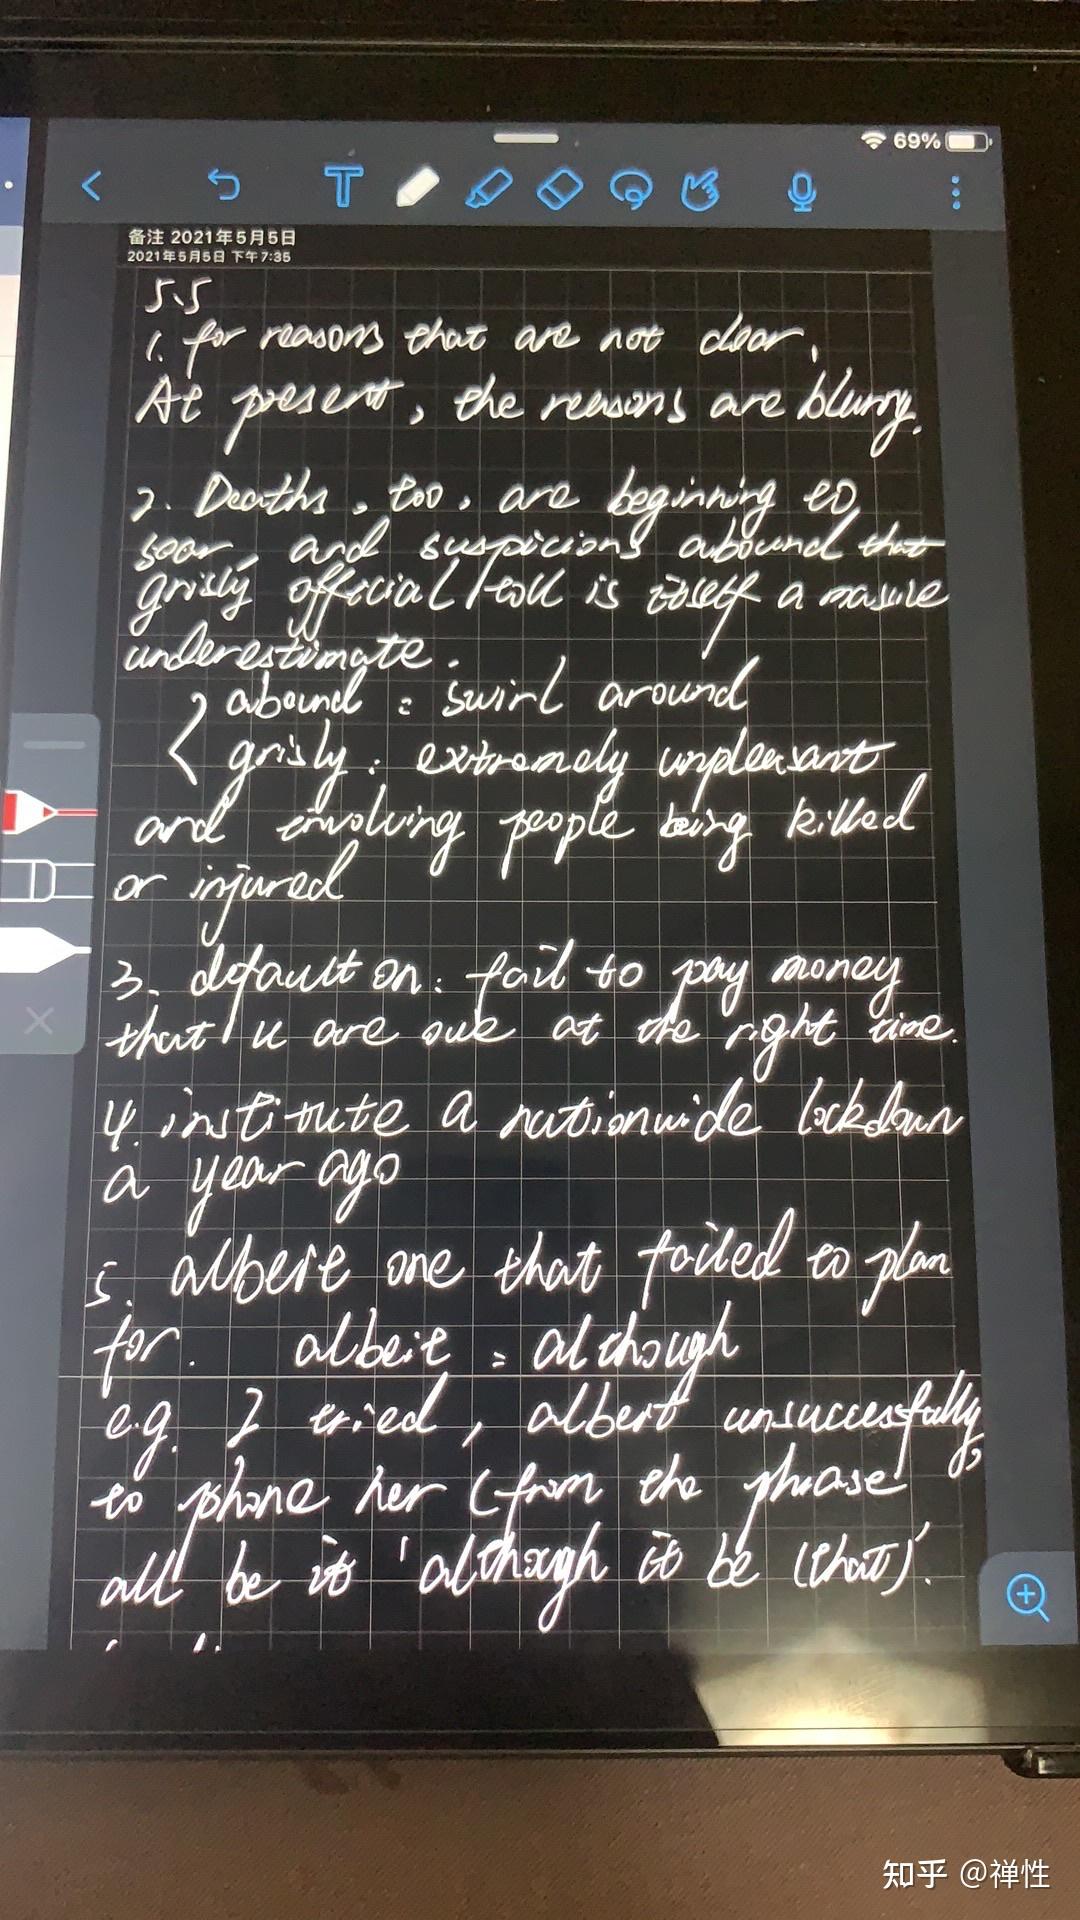 69%
备注 2021年5月5日
2021年5月5日 下午7:35
5.5
1. for reasons that are not clear,
At present, the reasons are blurry.
2. Deaths, too, are beginning to
soar, and suspicions abound that
grisly official toll is itself a massive
underestimate.
abound = swirl around
grisly: extremely unpleasant
and involving people being killed
or injured
3. default on: fail to pay money
that u are owe at the right time.
4. institute a nationwide lockdown
a year ago
5. albeit one that failed to plan
for. albeit = although
e.g. I tried, albeit unsuccessfully,
to phone her (from the phrase
all be it 'although it be (that)'.
知乎 @禅性